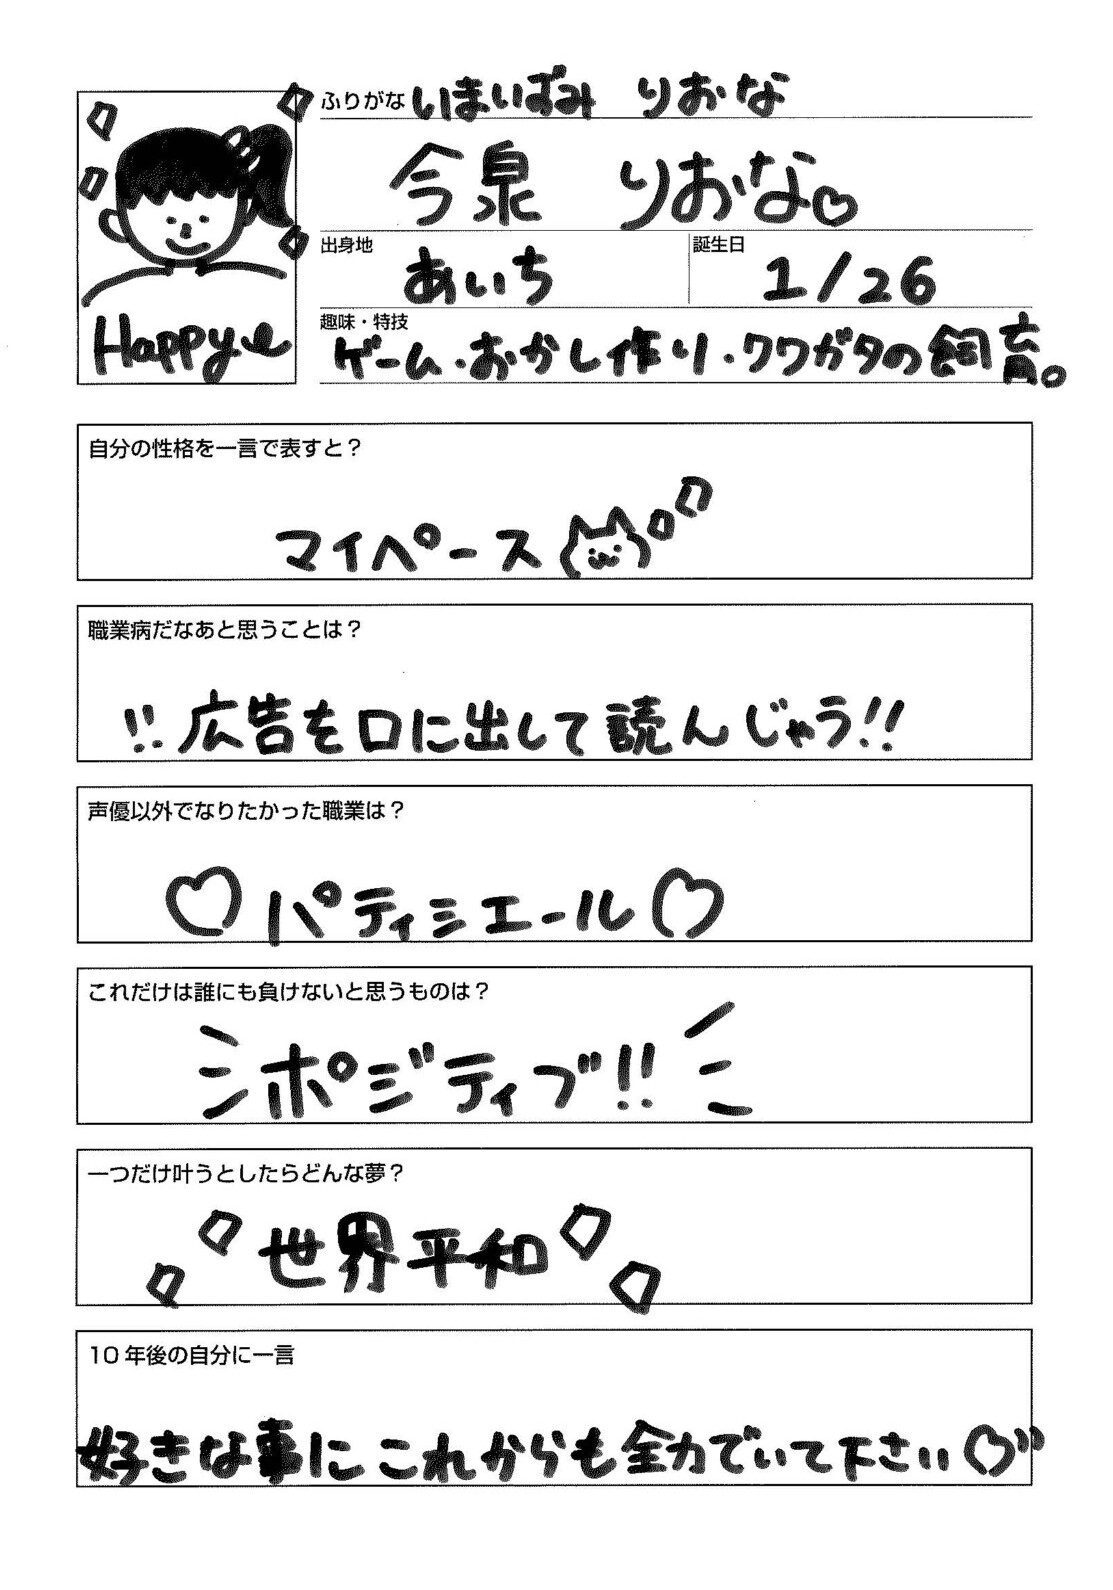 ふりがな いまいずみ りおな
今泉 りおな♡
出身地 あいち 誕生日 1/26
趣味・特技
ゲーム・おかし作り・クワガタの飼育。
Happy
自分の性格を一言で表すと？
マイペース
職業病だなあと思うことは？
!!広告を口に出して読んじゃう!!
声優以外でなりたかった職業は？
♡パティシエール♡
これだけは誰にも負けないと思うものは？
ポジティブ!!
一つだけ叶うとしたらどんな夢？
世界平和
10年後の自分に一言
好きな事にこれからも全力でいて下さい♡